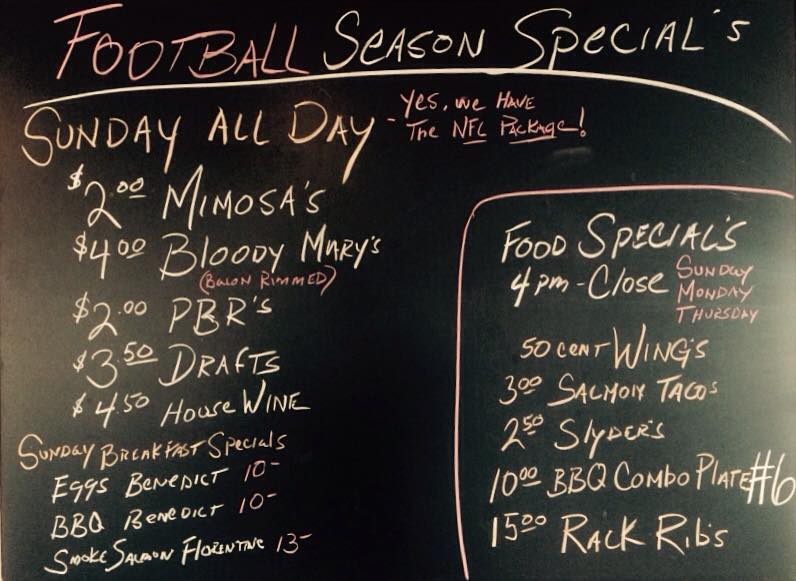 FOOTBALL SEASON SPECIAL'S
SUNDAY ALL DAY - Yes, we HAVE
The NFL PACKAGE!
$2.00 MIMOSA'S
$4.00 Bloody MARY'S
(BACON RIMMED)
$2.00 PBR'S
$3.50 DRAFTS
$4.50 House WINE
SUNDAY BREAKFAST SPECIALS
EGGS BENEDICT 10-
BBQ BENEDICT 10-
SMOKE SALMON FLORENTINE 13-
FOOD SPECIAL'S
4pm - Close SUNDAY
MONDAY
THURSDAY
50 CENT WING'S
3.00 SALMON TACOS
2.50 Slyder's
10.00 BBQ COMBO PLATE #6
15.00 RACK RIB'S